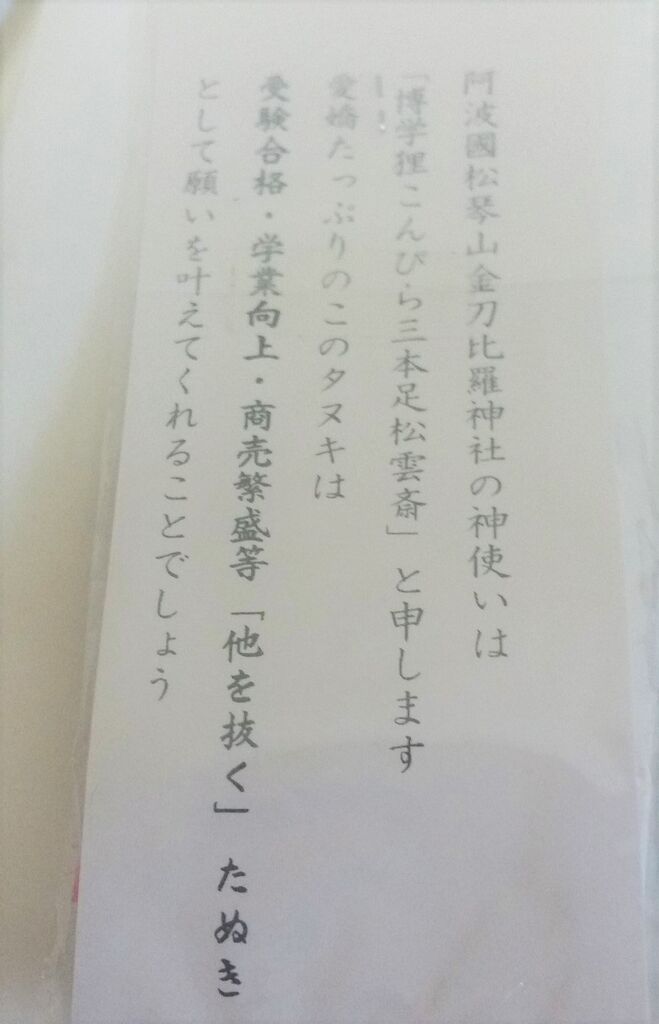 阿波國松琴山金刀比羅神社の神使いは
「博学狸こんぴら三本足松雲斎」と申します
愛嬌たっぷりのこのタヌキは
受験合格・学業向上・商売繁盛等「他を抜く」たぬき
として願いを叶えてくれることでしょう